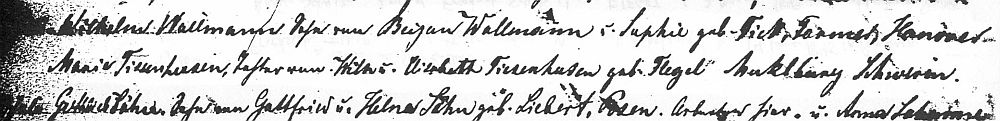 Wilhelm Wallmann Sohn von Bejan Wallmann u. Sophie geb. Tick, Farmer, Hanover
Marie Tiesenhusen, Tochter von Wilh. u. Elisabeth Tiesenhusen geb. Flegel Meklburg Schwerin.
Söhn. Sohn von Gottfried u. Helene Söhn geb. Liebert, Posen. Arbeiter hier. u. Anna